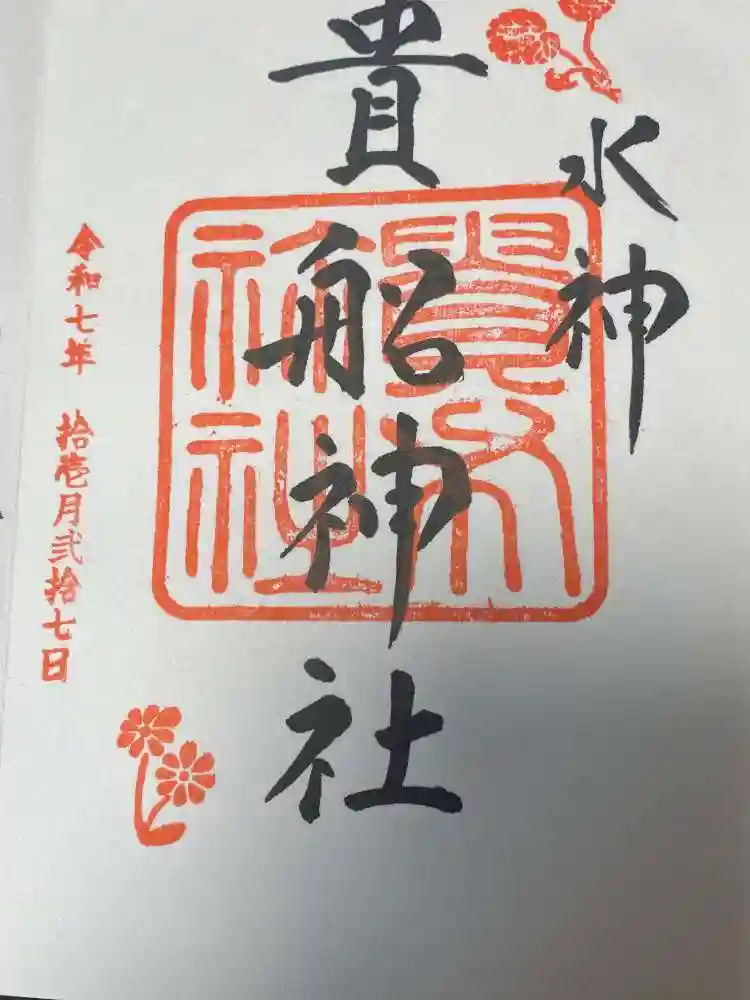 水神
貴船神社
令和七年 拾壱月弐拾七日